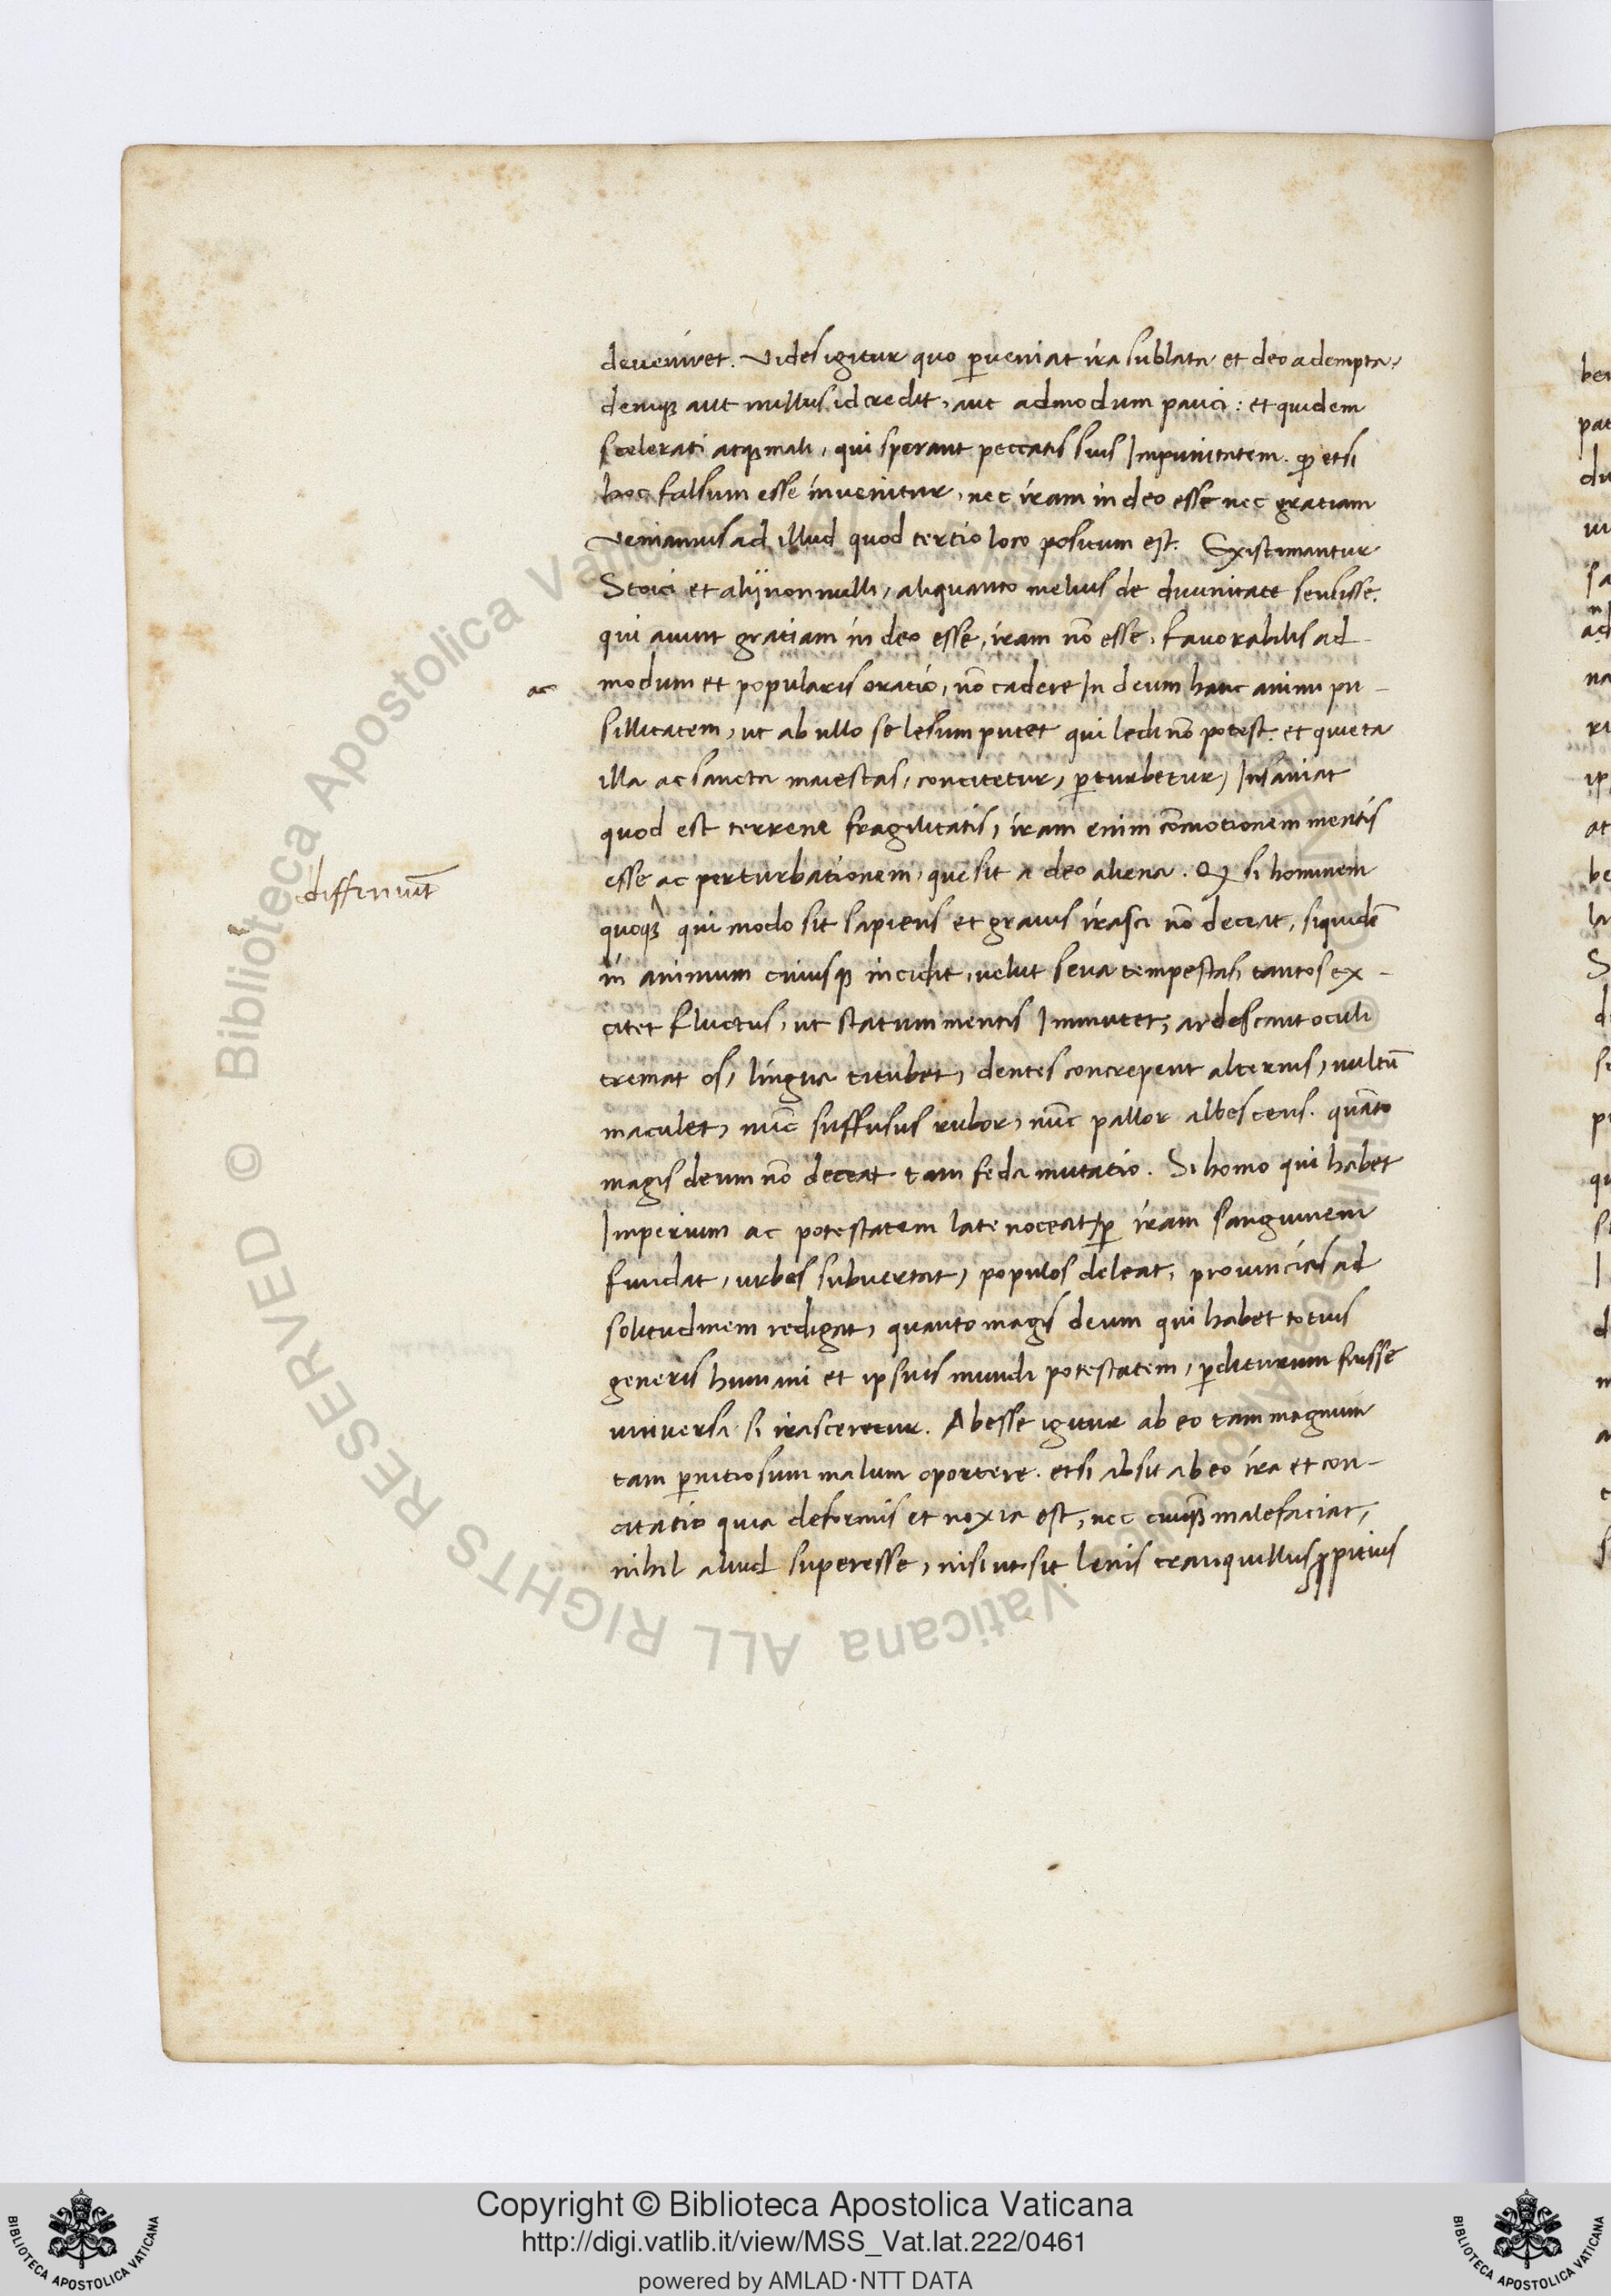 deueniret. Vides igitur quo ꝑueniat ira sublata et deo adempta.
deniqꝫ aut nullus id credit, aut admodum pauci: et quidem
scelerati atqꝫ mali, qui sperant peccatis suis Impunitatem. ꝙ etsi
hoc falsum esse inuenitur, nec iram in deo esse nec gratiam
Veniamus ad illud quod tertio loco positum est. Existimantur
Stoici et alij nonnulli, aliquanto melius de diuinitate sensisse.
qui aiunt gratiam in deo esse, iram nō esse. fauorabilis ad-
ac
modum et popularis oratio, nō cadere In deum hanc animi pu-
sillitatem, ut ab ullo se lesum putet qui ledi nō potest. et quieta
illa ac sancta maiestas, concitetur, ꝑturbetur, Insaniat
quod est terrene fragilitatis, iram enim cōmotionem mentis
esse ac perturbationem, que sit a deo aliena. Q si hominem
diffiniūt
quoqꝫ qui modo sit sapiens et grauis irasci nō deceat, siquidē
in animum cuiusqꝫ incidit, uelut seua tempestas, tantos ex-
citet fluctus, ut statum mentis Immutet, ardescant oculi
tremat os, lingua titubet, dentes concrepent alternis, uultū
maculet, nūc suffusus rubor, nūc pallor albescens. quāto
magis deum nō deceat tam feda mutatio. Si homo qui habet
Imperium ac potestatem late noceat ꝑ iram sanguinem
fundat, urbes subuertat, populos deleat, prouincias ad
solitudinem redigat, quanto magis deum qui habet totius
generis humani et ipsius mundi potestatem, ꝑditurum fuisse
uniuersa si irasceretur. Abesse igitur ab eo tam magnum
tam ꝑnitiosum malum oportere. et si absit ab eo ira et con-
citatio quia deformis et noxia est, nec cuiqꝫ male faciat,
nihil aliud superesse, nisi ut sit lenis tranquillus ꝓpitius
© Biblioteca Apostolica Vaticana ALL RIGHTS RESERVED
Copyright © Biblioteca Apostolica Vaticana
http://digi.vatlib.it/view/MSS_Vat.lat.222/0461
powered by AMLAD·NTT DATA
BIBLIOTECA APOSTOLICA VATICANA
BIBLIOTECA APOSTOLICA VATICANA